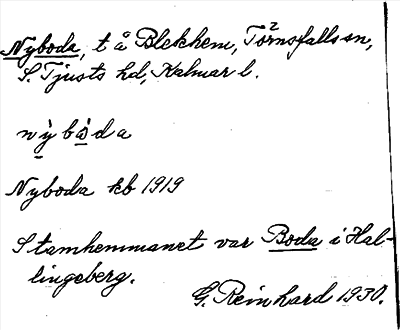 Nyboda, t å Blekhem, Törnsfalls sn,
S. Tjusts hd, Kalmar l.
nỳ bòda
Nyboda kb 1919
Stamhemmanet var Boda i Hal-
lingeberg.
G. Reinhard 1930.